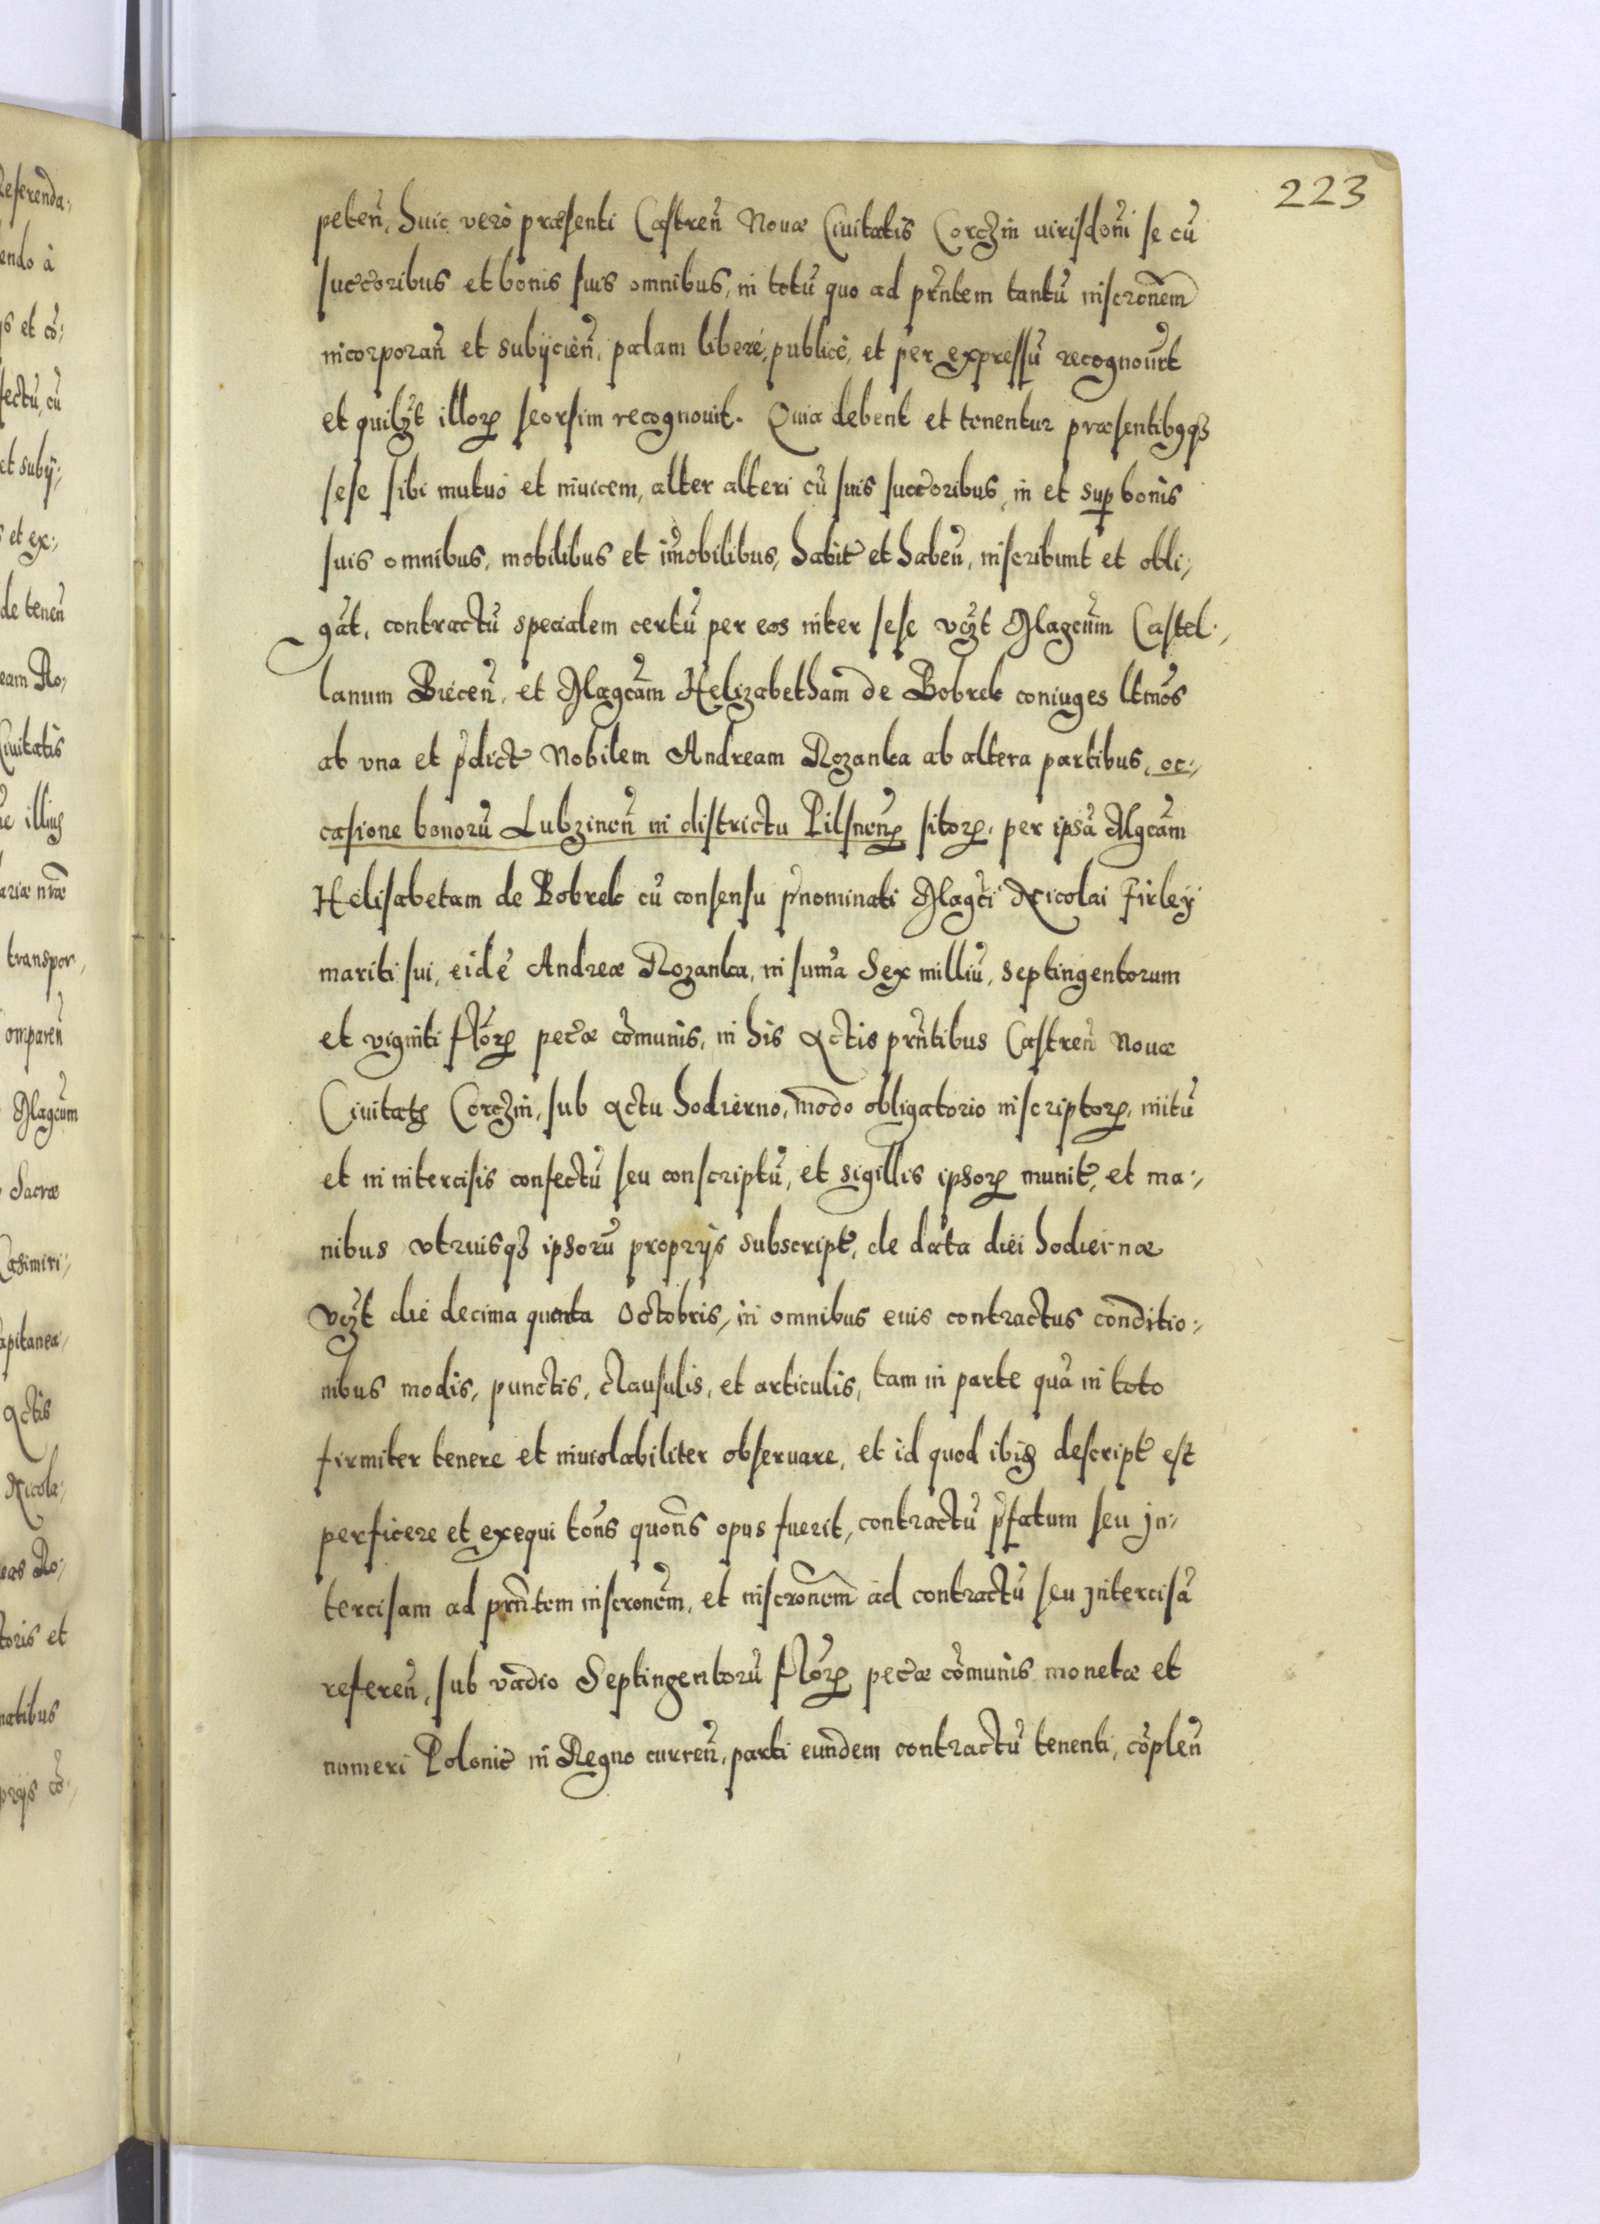 223
peten̄, huic verò præsenti Castren̄ Nouæ Ciuitatis Corczin iurisdoni se cū
succoribus et bonis suis omnibus, in totū quo ad prntem tantū inscronem
incorporan̄ et subijcien̄, palam liberè, publicè, et per expressū recognouert
et quilzt illorꝝ seorsim recognouit. Quia debent et tenentur præsentibusqꝫ
sese sibi mutuò et inuicem, alter alteri cū suis succoribus, in et sup bonis
suis omnibus, mobilibus et imobilibus, habit et haben̄, inscribunt et obli:,
gāt, contractū specialem certū per eos inter sese vczt Magcum Castel:,
lanum Biecen̄, et Magcam Helizabetham de Bobrek coniuges ltmos
ab vna et pdict Nobilem Andream Rozanka ab altera partibus, oc:,
casione bonorū Lubzinen̄ in districtu Pilsnenꝝ sitorꝝ, per ipsā Mgcam
Helisabetam de Bobrek cū consensu pnominati Magci Nicolai Firley
mariti sui, eidē Andreæ Rozanka, in suma Sex milliū, septingentorum
et viginti florꝝ pecæ comunis, in his Actis prntibus Castren̄ Nouæ
Ciuitatꝭ Corczin, sub Actu hodierno, modo obligatorio inscriptorꝝ, initū
et in intercisis confectū seu conscriptū, et sigillis ipsorꝝ munit, et ma:,
nibus vtruisqꝫ ipsorū proprijs subscript, de data diei hodiernæ
vczt die decima quinta Octobris, in omnibus eius contractus conditio:,
nibus modis, punctis, clausulis, et articulis, tam in parte quā in toto
firmiter tenere et inuiolabiliter obseruare, et id quod ibiꝫ descript est
perficere et exequi tons quons opus fuerit, contractū pfatum seu In:,
tercisam ad prntem inscronem, et inscronem ad contractū seu Intercisā
referen̄, sub vadio Septingentorū florꝝ pecæ comunis monetæ et
numeri Polonic in Regno curren̄, parti eundem contractū tenenti, coplen̄